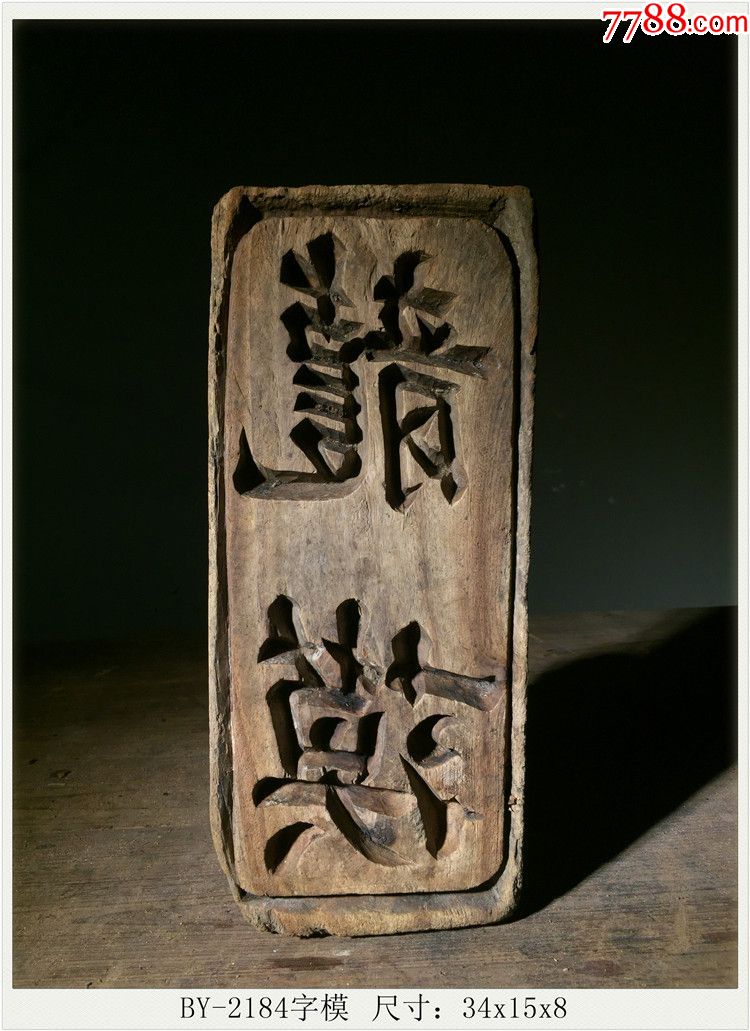 7788.com
龍
BY-2184字模 尺寸：34x15x8